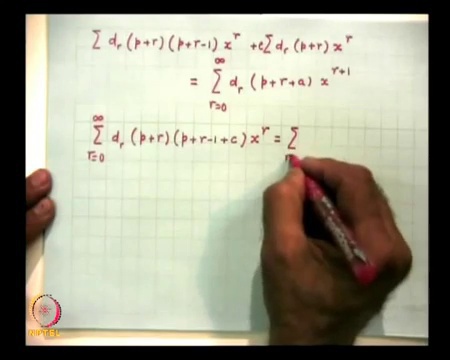 ∑ d_r (p+r)(p+r-1) x^r + c∑ d_r (p+r) x^r
= ∑_{r=0}^{∞} d_r (p+r+a) x^{r+1}
∑_{r=0}^{∞} d_r (p+r)(p+r-1+c) x^r = ∑
NPTEL